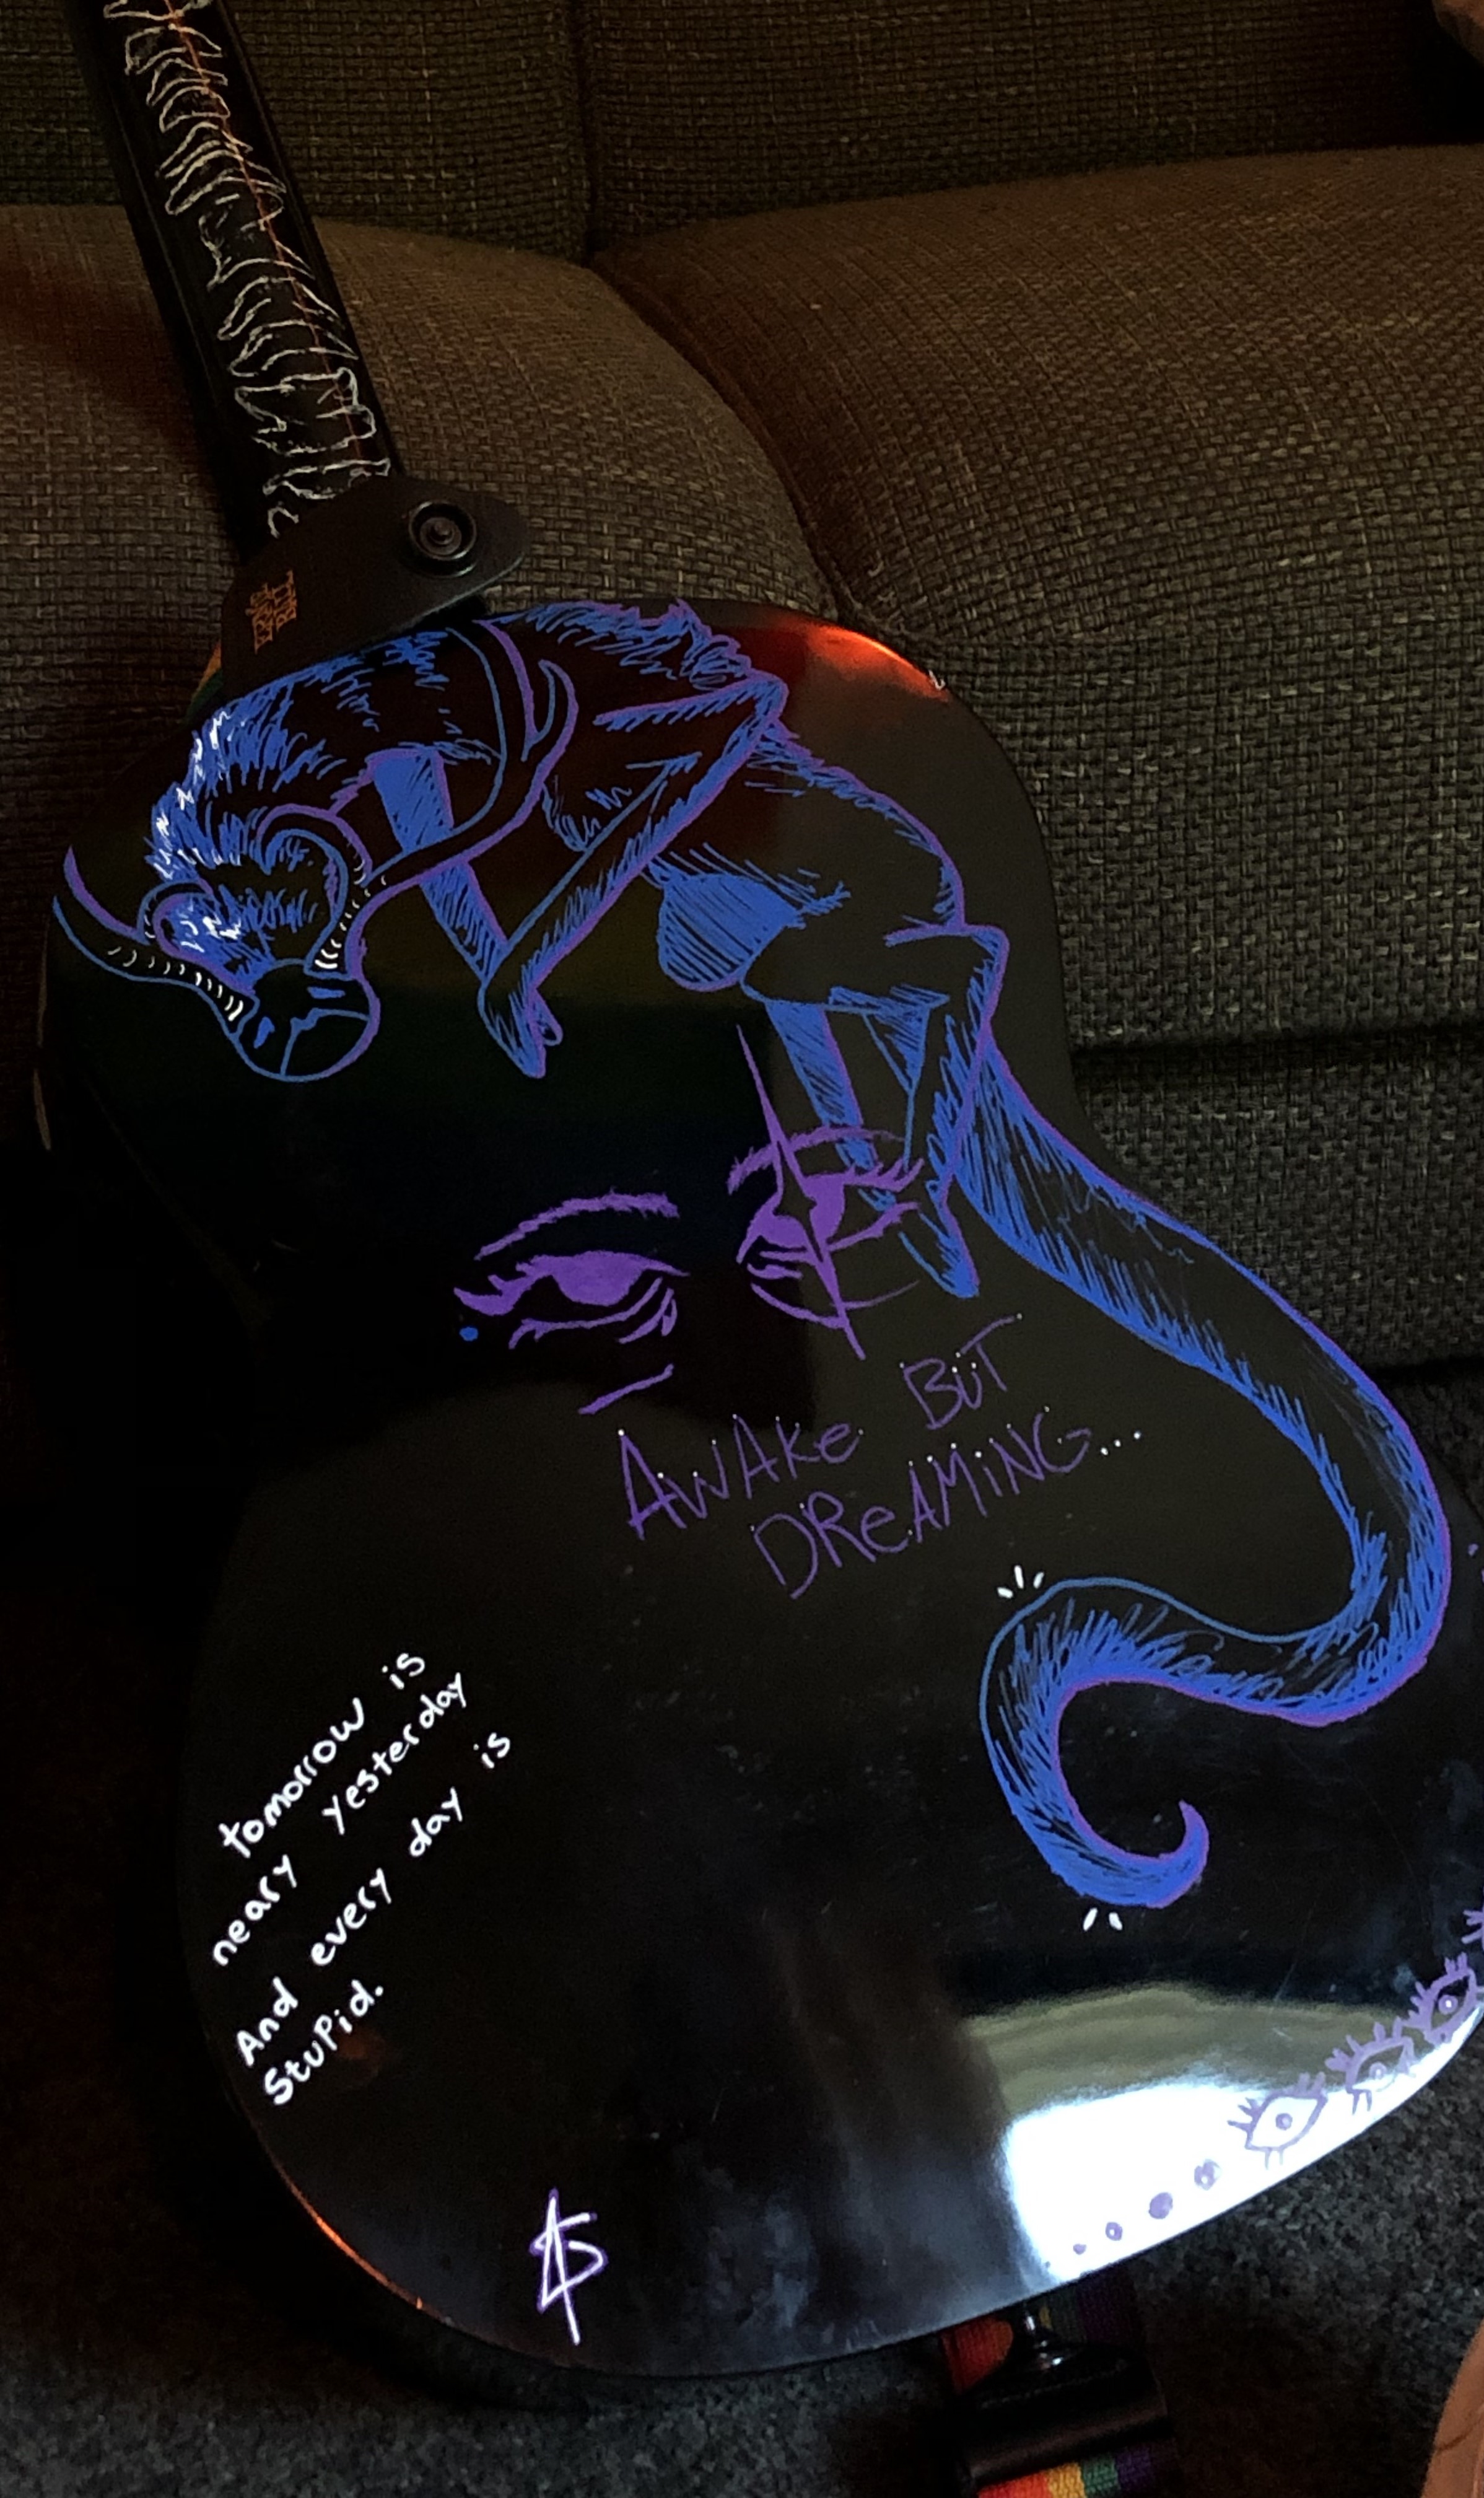 ERNIE
BALL
AWAKe BUT
DReAMiNG...
tomorrow is
neary yesterday
And every day is
Stupid.